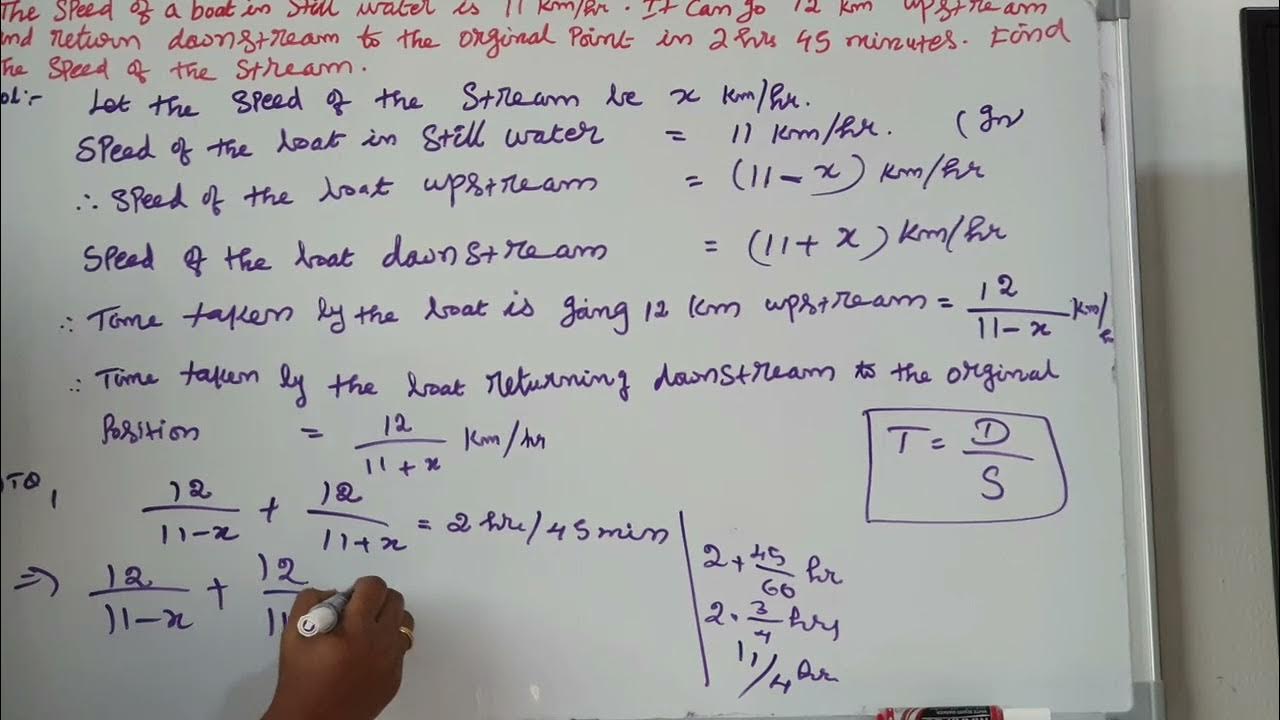 The Speed of a boat in Still water is 11 km/hr. It can go 12 km upstream
and return downstream to the orginal Point in 2 hrs 45 minutes. Find
the Speed of the Stream.
ol:- Let the Speed of the Stream be x km/hr.
Speed of the boat in Still water = 11 km/hr. (Gn
∴ Speed of the boat upstream = (11 - x) km/hr
Speed of the boat downstream = (11 + x) km/hr
∴ Time taken by the boat is going 12 km upstream = 12/(11 - x) km/h
∴ Time taken by the boat returning downstream to the orginal
Position = 12/(11 + x) km/hr
T = D/S
TQ, 12/(11-x) + 12/(11+x) = 2 hr/45 min
⇒ 12/(11-x) + 12/11
2 + 45/60 hr
2 . 3/4 hrs
11/4 hr